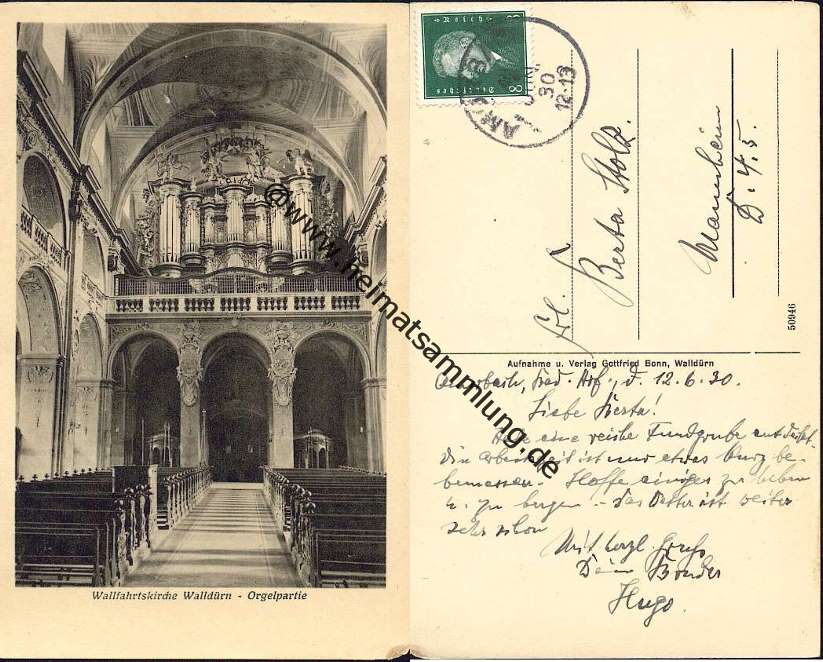 Wallfahrtskirche Walldürn - Orgelpartie
@www.heimatsammlung.de
8 Reich 8
Deutsches
30
12-13
Frl.
Berta Stolz
Mannheim
D. 4. 5.
50946
Aufnahme u. Verlag Gottfried Bonn, Walldürn
d. 12.6.30.
Liebe Berta!
Habe eine reiche Fundgrube entdeckt.
Die Arbeitszeit ist nur etwas kurz be-
bemessen. Hoffe einiges zu heben
u. zu bergen - Das Wetter ist weiter
sehr schön
Mit herzl Gruß
Dein Bruder
Hugo.